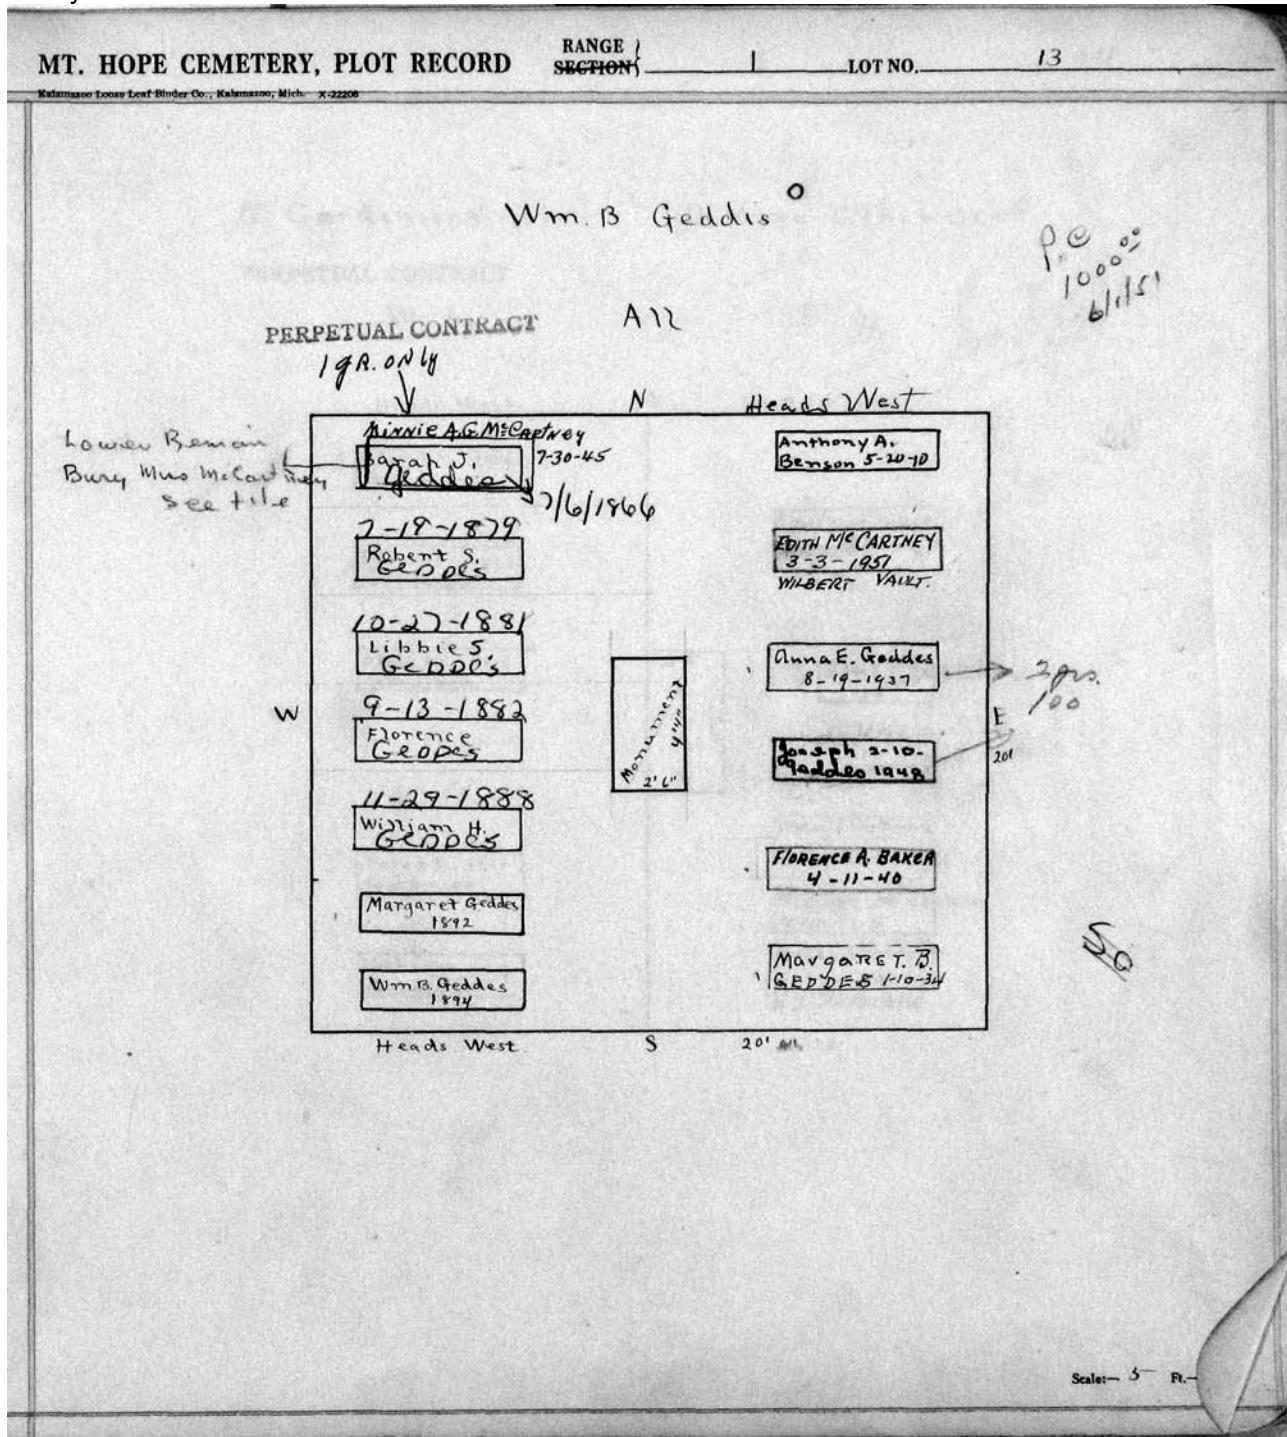 MT. HOPE CEMETERY, PLOT RECORD
RANGE
SECTION
1
LOT NO.
13
Kalamazoo Loose Leaf Binder Co., Kalamazoo, Mich. X-22208
Wm. B Geddis
P.C
1000.00
6/1/51
All
PERPETUAL CONTRACT
1 gR. ONly
N
Heads West
Lower Remain
Bury Mrs McCartney
See file
Minnie A.G. McCartney
7-30-45
Sarah J.
Geddes
7/6/1866
7-19-1879
Robert S.
GEDDES
10-27-1881
Libbie S.
GEDDES
9-13-1882
Florence
GEDDES
11-29-1888
William H.
GEDDES
Margaret Geddes
1892
Wm B. Geddes
1894
W
Monument
4'4"
2'6"
Anthony A.
Benson 5-20-10
EDITH McCARTNEY
3-3-1951
WILBERT VAULT.
Anna E. Geddes
8-19-1937
2 grs.
100
E
20'
Joseph 2-10-
Geddes 1948
FLORENCE A. BAKER
4-11-40
MARGARET. B.
GEDDES 1-10-34
50
Heads West
S
20'
Scale:— 5 Ft.—